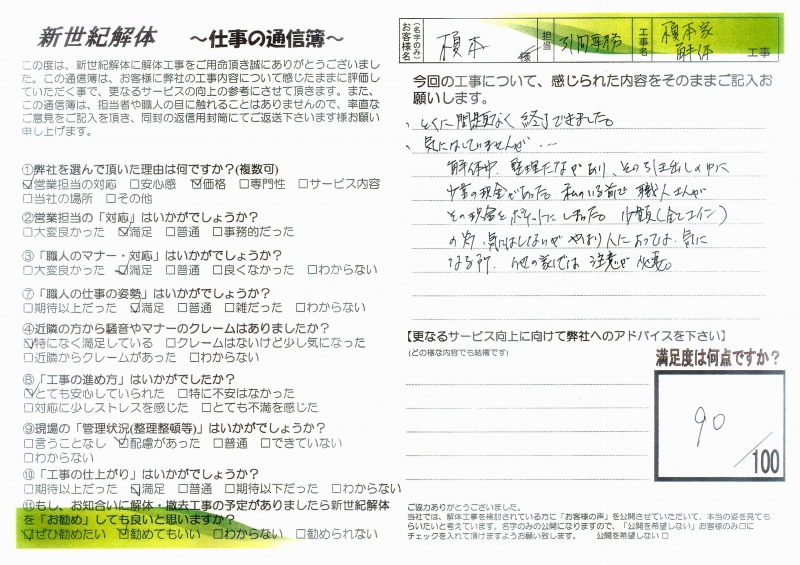 新世紀解体 ～仕事の通信簿～
この度は、新世紀解体に解体工事をご用命頂き誠にありがとうございまし
た。この通信簿は、お客様に弊社の工事内容について感じたままに評価し
ていただく事で、更なるサービスの向上の参考にさせて頂きます。また、
この通信簿は、担当者や職人の目に触れることはありませんので、率直な
ご意見をご記入を頂き、同封の返信用封筒にてご返送下さいます様お願い
申し上げます。
①弊社を選んで頂いた理由は何ですか?(複数可)
☑営業担当の対応 □安心感 ☑価格 □専門性 □サービス内容
□当社の場所 □その他
②営業担当の「対応」はいかがでしょうか?
□大変良かった ☑満足 □普通 □事務的だった
③「職人のマナー・対応」はいかがでしょうか?
□大変良かった ☑満足 □普通 □良くなかった □わからない
⑦「職人の仕事の姿勢」はいかがでしょうか?
□期待以上だった ☑満足 □普通 □雑だった □わからない
④近隣の方から騒音やマナーのクレームはありましたか?
☑特になく満足している □クレームはないけど少し気になった
□近隣からクレームがあった □わからない
⑧「工事の進め方」はいかがでしたか?
☑とても安心していられた □特に不安はなかった
□対応に少しストレスを感じた □とても不満を感じた
⑨現場の「管理状況(整理整頓等)」はいかがでしょうか?
□言うことなし ☑配慮があった □普通 □できていない
□わからない
⑩「工事の仕上がり」はいかがでしょうか?
□期待以上だった ☑満足 □普通 □期待以下だった □わからない
⑪もし、お知合いに解体・撤去工事の予定がありましたら新世紀解体
を「お勧め」しても良いと思いますか?
☑ぜひ勧めたい ☑勧めてもいい □わからない □勧められない
お客様名 (名字のみ) 榎本 様 担当 引間専務 工事名 榎本家 解体 工事
今回の工事について、感じられた内容をそのままご記入お
願いします。
、とくに問題なく終了できました。
、気にはしていませんが、--
解体中、整理たながあり、その引き出しの中に
少量の現金があった。私のいる前で職人さんが
その現金をポケットにしまった。少額(全てコイン)
の為、気にはしないが やはり人によっては、気に
なる所。他の家では注意が必要。
【更なるサービス向上に向けて弊社へのアドバイスを下さい】
(どの様な内容でも結構です)
満足度は何点ですか?
90
/100
ご協力ありがとうございました。
当社では、解体工事を検討されている方に「お客様の声」を公開させていただいて、本当の姿を見ても
らいたいと考えています。名字のみの公開になりますので、「公開を希望しない」お客様のみ□に
チェックを入れて頂けますようお願い致します。 公開を希望しない □